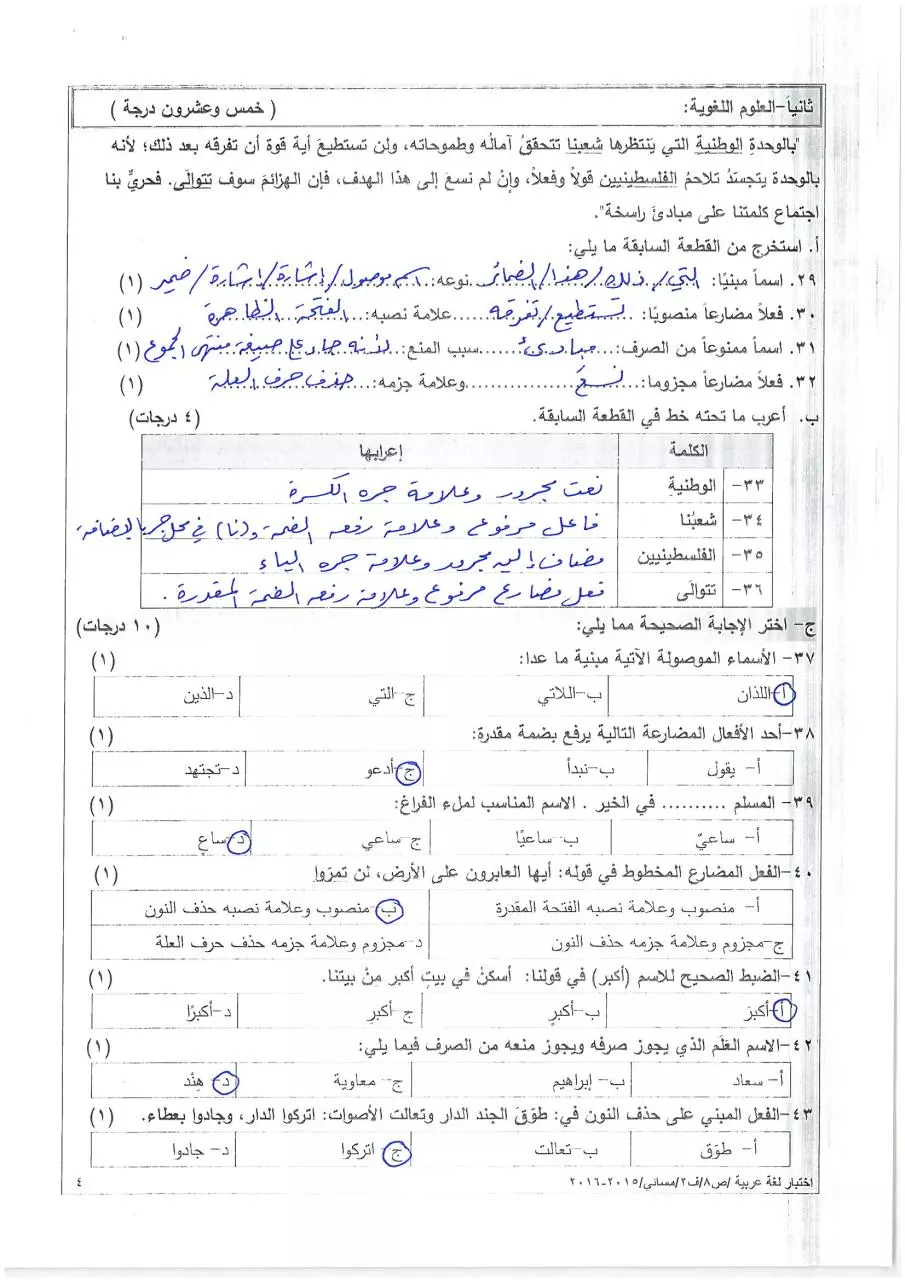 ثانياً-العلوم اللغوية: ( خمس وعشرون درجة )
"بالوحدةِ الوطنيةِ التي يَنتظرها شعبنا تتحققُ آمالُه وطموحاته، ولن تستطيعَ أية قوة أن تفرقه بعد ذلك؛ لأنه
بالوحدة يتجسَدُ تلاحمُ الفلسطينيين قولاً وفعلاً، وإنْ لم نسعَ إلى هذا الهدف، فإن الهزائمَ سوف تتوالَى. فحريٌّ بنا
اجتماع كلمتنا على مبادئَ راسخة".
أ. استخرج من القطعة السابقة ما يلي:
٢٩. اسماً مبنيًا: التي/ذلك/هذا/الضمائر نوعه: اسم موصول/إشارة/إشارة/ضمير (١)
٣٠. فعلاً مضارعاً منصوبًا: تستطيع/تفرقه علامة نصبه: الفتحة الظاهرة (١)
٣١. اسماً ممنوعاً من الصرف: مبادئ سبب المنع: لأنه جاء على صيغة منتهى الجموع (١)
٣٢. فعلاً مضارعاً مجزوما: نسعَ وعلامة جزمه: حذف حرف العلة (١)
ب. أعرب ما تحته خط في القطعة السابقة. (٤ درجات)
الكلمة إعرابها
٣٣- الوطنيةِ نعت مجرور وعلامة جره الكسرة
٣٤- شعبُنا فاعل مرفوع وعلامة رفعه الضمة و(نا) في محل جر بالإضافة
٣٥- الفلسطينيين مضاف إليه مجرور وعلامة جره الياء
٣٦- تتوالَى فعل مضارع مرفوع وعلامة رفعه الضمة المقدرة.
ج- اختر الإجابة الصحيحة مما يلي: (١٠ درجات)
٣٧- الأسماء الموصولة الآتية مبنية ما عدا: (١)
أ-اللذان ب-اللاتي ج-التي د-الذين
٣٨-أحد الأفعال المضارعة التالية يرفع بضمة مقدرة: (١)
أ- يقول ب-نبدأ ج-أدعو د-تجتهد
٣٩- المسلم .......... في الخير . الاسم المناسب لملء الفراغ: (١)
أ- ساعيٌ ب-ساعيًا ج-ساعي د-ساعٍ
٤٠-الفعل المضارع المخطوط في قوله: أيها العابرون على الأرض، لن تمرّوا (١)
أ- منصوب وعلامة نصبه الفتحة المقدرة ب-منصوب وعلامة نصبه حذف النون
ج-مجزوم وعلامة جزمه حذف النون د-مجزوم وعلامة جزمه حذف حرف العلة
٤١-الضبط الصحيح للاسم (أكبر) في قولنا: أسكنُ في بيتٍ أكبر منْ بيتنا. (١)
أ-أكبرَ ب-أكبرٍ ج-أكبرِ د-أكبرًا
٤٢-الاسم العَلَم الذي يجوز صرفه ويجوز منعه من الصرف فيما يلي: (١)
أ- سعاد ب- إبراهيم ج- معاوية د- هِنْد
٤٣-الفعل المبني على حذف النون في: طوّقَ الجند الدار وتعالت الأصوات: اتركوا الدار، وجادوا بعطاء. (١)
أ- طوّق ب-تعالت ج- اتركوا د- جادوا
اختبار لغة عربية /ص٨/ف٢/مسائي/٢٠١٥-٢٠١٦ ٤